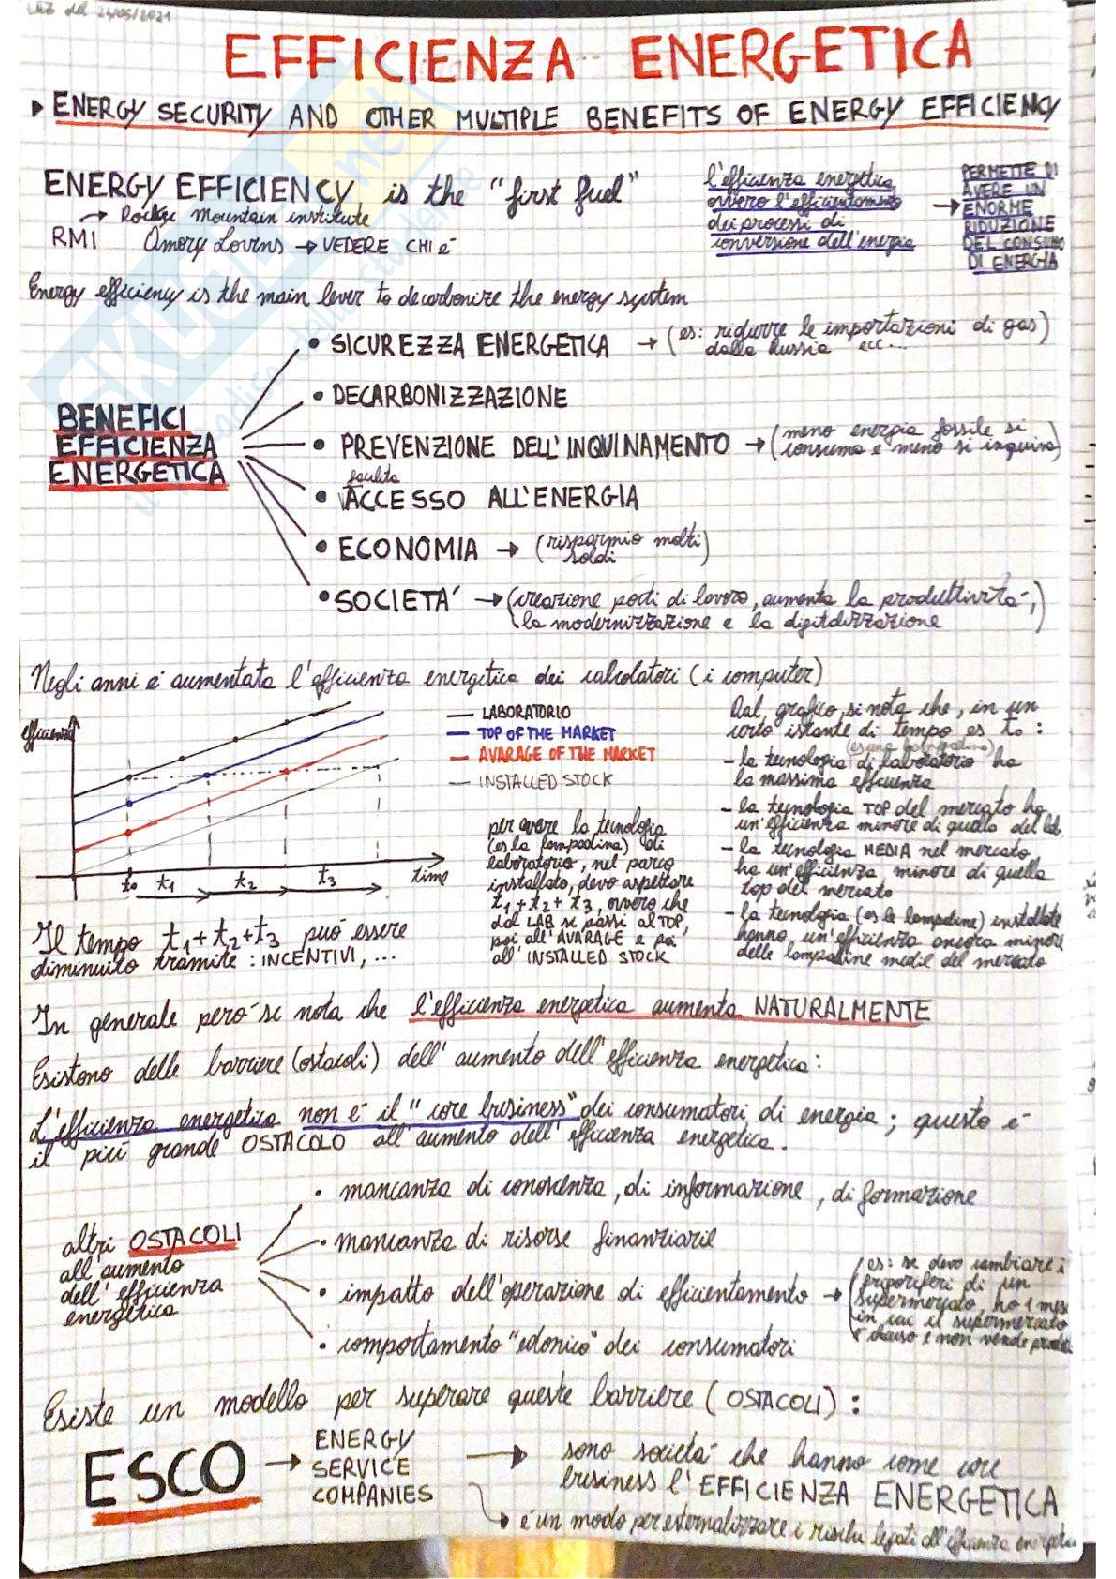 LEZ del 24/05/2021
EFFICIENZA ENERGETICA
ENERGY SECURITY AND OTHER MULTIPLE BENEFITS OF ENERGY EFFICIENCY
ENERGY EFFICIENCY is the "first fuel"
→ Rockye Mountain institute
RMI Amory Lovins → VEDERE CHI é
l'efficienza energetica
ovvero l'efficientamento
dei processi di
conversione dell'energia
→ PERMETTE DI
AVERE UN
ENORME
RIDUZIONE
DEL CONSUMO
DI ENERGIA
Energy efficiency is the main lever to decarbonize the energy system
BENEFICI
EFFICIENZA
ENERGETICA
• SICUREZZA ENERGETICA → (es: ridurre le importazioni di gas)
dalla Russia ecc...
• DECARBONIZZAZIONE
• PREVENZIONE DELL'INQUINAMENTO → (meno energia fossile si
consuma e meno si inquina)
facilita
• ACCESSO ALL'ENERGIA
• ECONOMIA → (risparmio molti
soldi)
• SOCIETA' → (creazione posti di lavoro, aumenta la produttività,
la modernizzazione e la digitalizzazione)
Negli anni é aumentata l'efficienza energetica dei calcolatori (i computer)
efficienza
— LABORATORIO
— TOP OF THE MARKET
— AVARAGE OF THE MARKET
— INSTALLED STOCK
t₀ t₁ t₂ t₃ time
per avere la tecnologia
(es la lampadina) di
laboratorio, nel parco
installato, devo aspettare
t₁+t₂+t₃, ovvero che
dal LAB si passi al TOP,
poi all'AVARAGE e poi
all'INSTALLED STOCK
Dal grafico, si nota che, in un
certo istante di tempo es t₀:
- la tecnologia di laboratorio ha
la massima efficienza
- la tecnologia TOP del mercato ha
un'efficienza minore di quella del lab
- la tecnologia MEDIA nel mercato
ha un'efficienza minore di quella
top del mercato
- la tecnologia (es le lampadine) installate
hanno un'efficienza ancora minore
delle lampadine medie del mercato
Il tempo t₁+t₂+t₃ può essere
diminuito tramite: INCENTIVI, ...
In generale però si nota che l'efficienza energetica aumenta NATURALMENTE
Esistono delle barriere (ostacoli) dell'aumento dell'efficienza energetica:
L'efficienza energetica non é il "core business" dei consumatori di energia; questo é
il più grande OSTACOLO all'aumento dell'efficienza energetica.
altri OSTACOLI
all'aumento
dell'efficienza
energetica
• mancanza di conoscenza, di informazione, di formazione
• mancanza di risorse finanziarie
• impatto dell'operazione di efficientamento →
(es: se devo cambiare i
frigoriferi di un
supermercato, ho 1 mese
in cui il supermercato
é chiuso e non vende
• comportamento "edonico" dei consumatori
Esiste un modello per superare queste barriere (OSTACOLI):
ESCO → ENERGY
SERVICE
COMPANIES
→ sono società che hanno come core
business l'EFFICIENZA ENERGETICA
→ é un modo per esternalizzare i rischi legati all'efficienza energetica